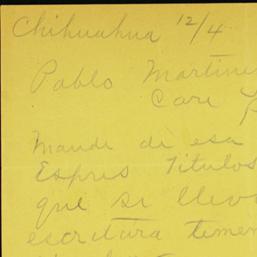 Chihuahua 12/4
Pablo Martine
Care
Mande de esa
Espres Titulos
que se llevo
escritura temen